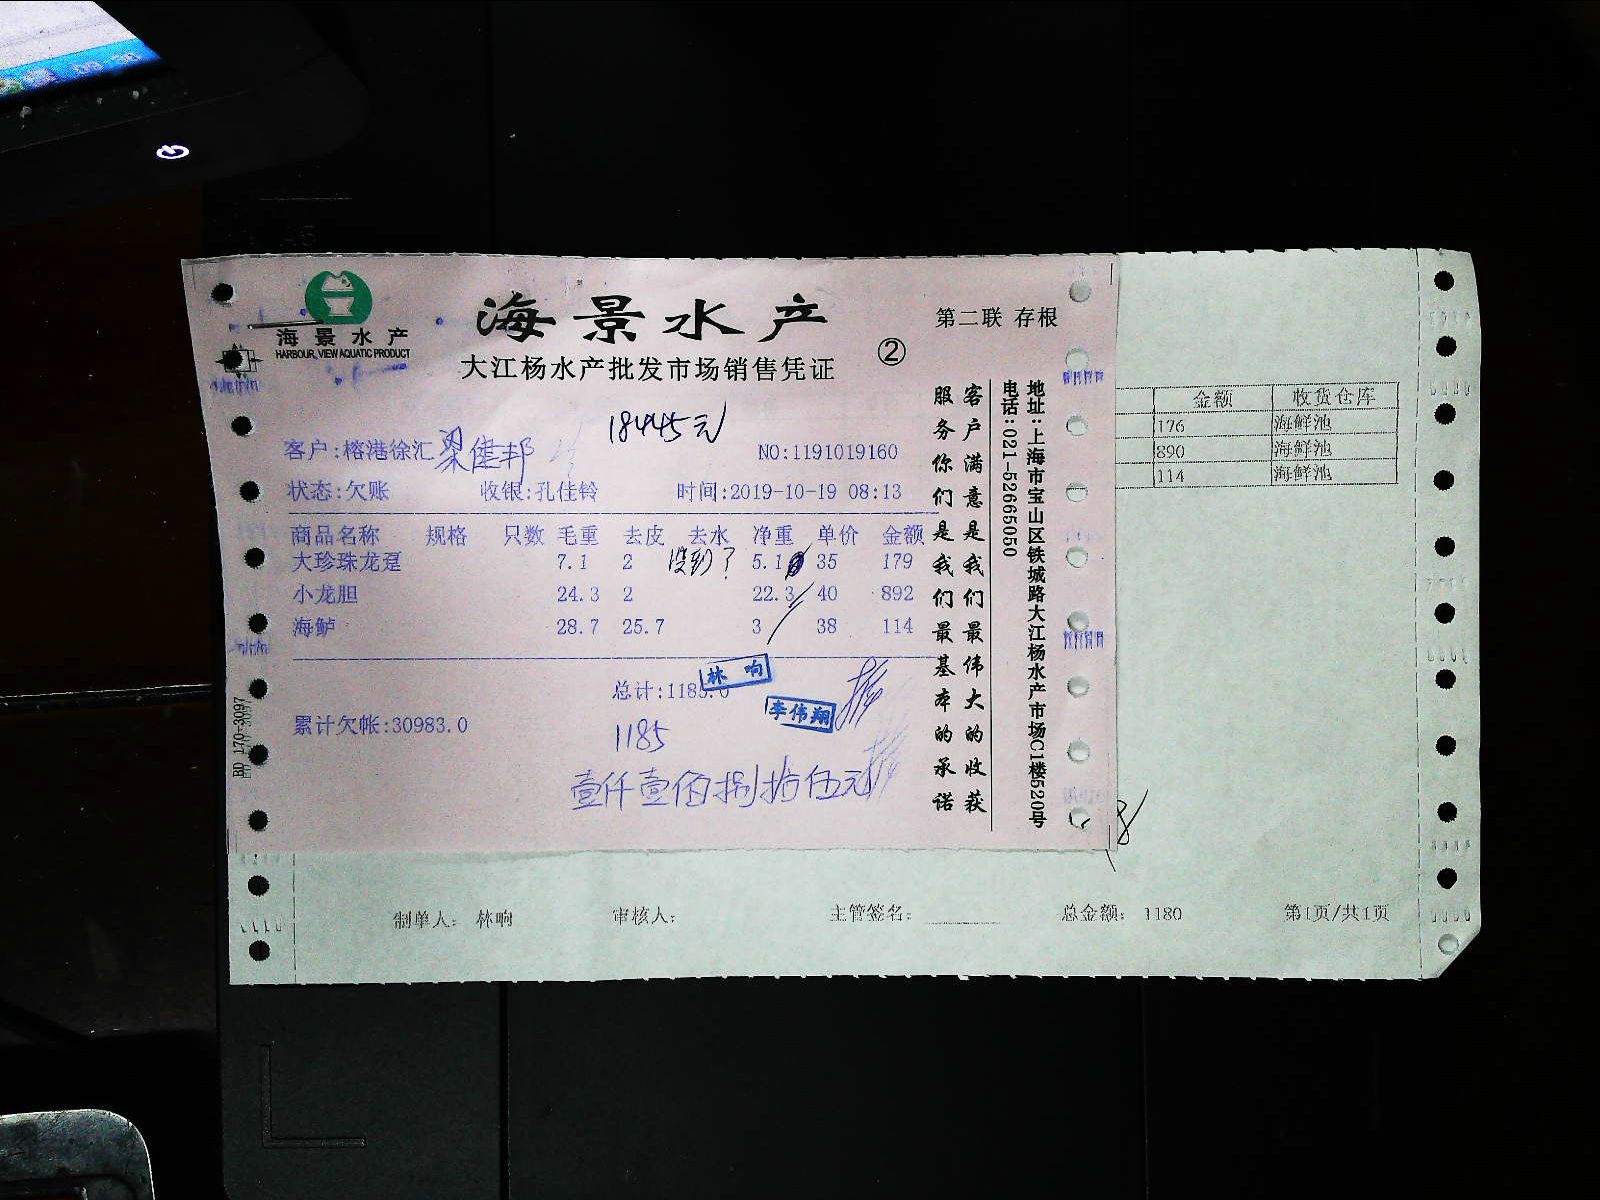 09:30
海景水产
HARBOUR VIEW AQUATIC PRODUCT
海景水产
大江杨水产批发市场销售凭证
②
第二联 存根
18445元
客户:榕港徐汇 梁健邦
NO:1191019160
状态:欠账 收银:孔佳铃 时间:2019-10-19 08:13
商品名称 规格 只数 毛重 去皮 去水 净重 单价 金额
大珍珠龙趸 7.1 2 没到? 5.1 35 179
小龙胆 24.3 2 22.3 40 892
海鲈 28.7 25.7 3 38 114
总计:1185.0
林响
李伟翔
累计欠帐:30983.0
1185
壹仟壹佰捌拾伍元
客户满意是我们最伟大的收获
服务你们是我们最基本的承诺
地址:上海市宝山区铁城路大江杨水产市场C1楼520号
电话:021-52665050
BD 170-3097
金额 收货仓库
176 海鲜池
890 海鲜池
114 海鲜池
制单人: 林响 审核人: 主管签名: 总金额: 1180 第1页/共1页